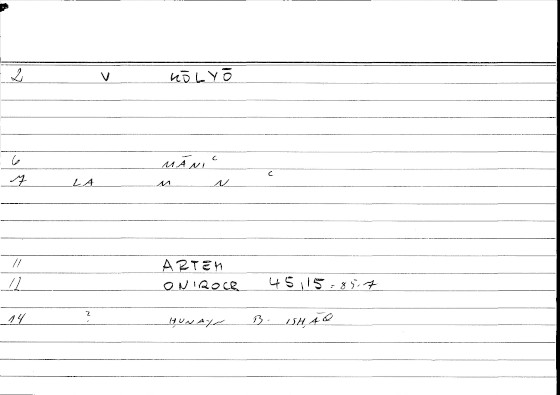 2 V HŌLYŌ
6 MĀNIᶜ
7 LA M N ᶜ
11 ARTEM
12 ONIROCR 45,15 - 85.7
14 ? ḤUNAYN B. ISḤĀQ